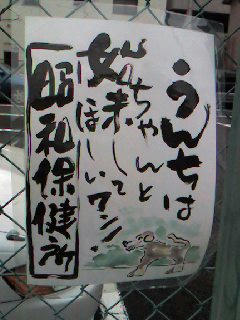 うんちは
ちゃんと
始末して
ほしいワン!
昭和保健所